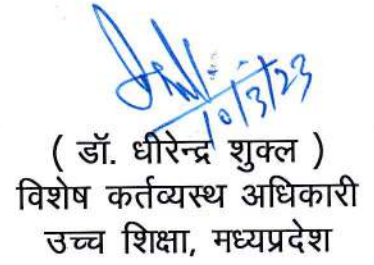 10/3/23
( डॉ. धीरेन्द्र शुक्ल )
विशेष कर्तव्यस्थ अधिकारी
उच्च शिक्षा, मध्यप्रदेश